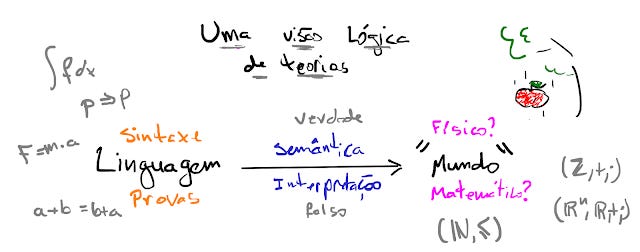 Uma visão Lógica
de teorias
∫f dx
p ⇒ p
F=m.a
a+b=b+a
Sintaxe
Linguagem
Provas
Verdade
Semântica
Interpretação
falso
Físico?
"Mundo"
Matemático?
(ℕ,≤)
(ℤ,+,·)
(ℝⁿ,ℝ,+,·)